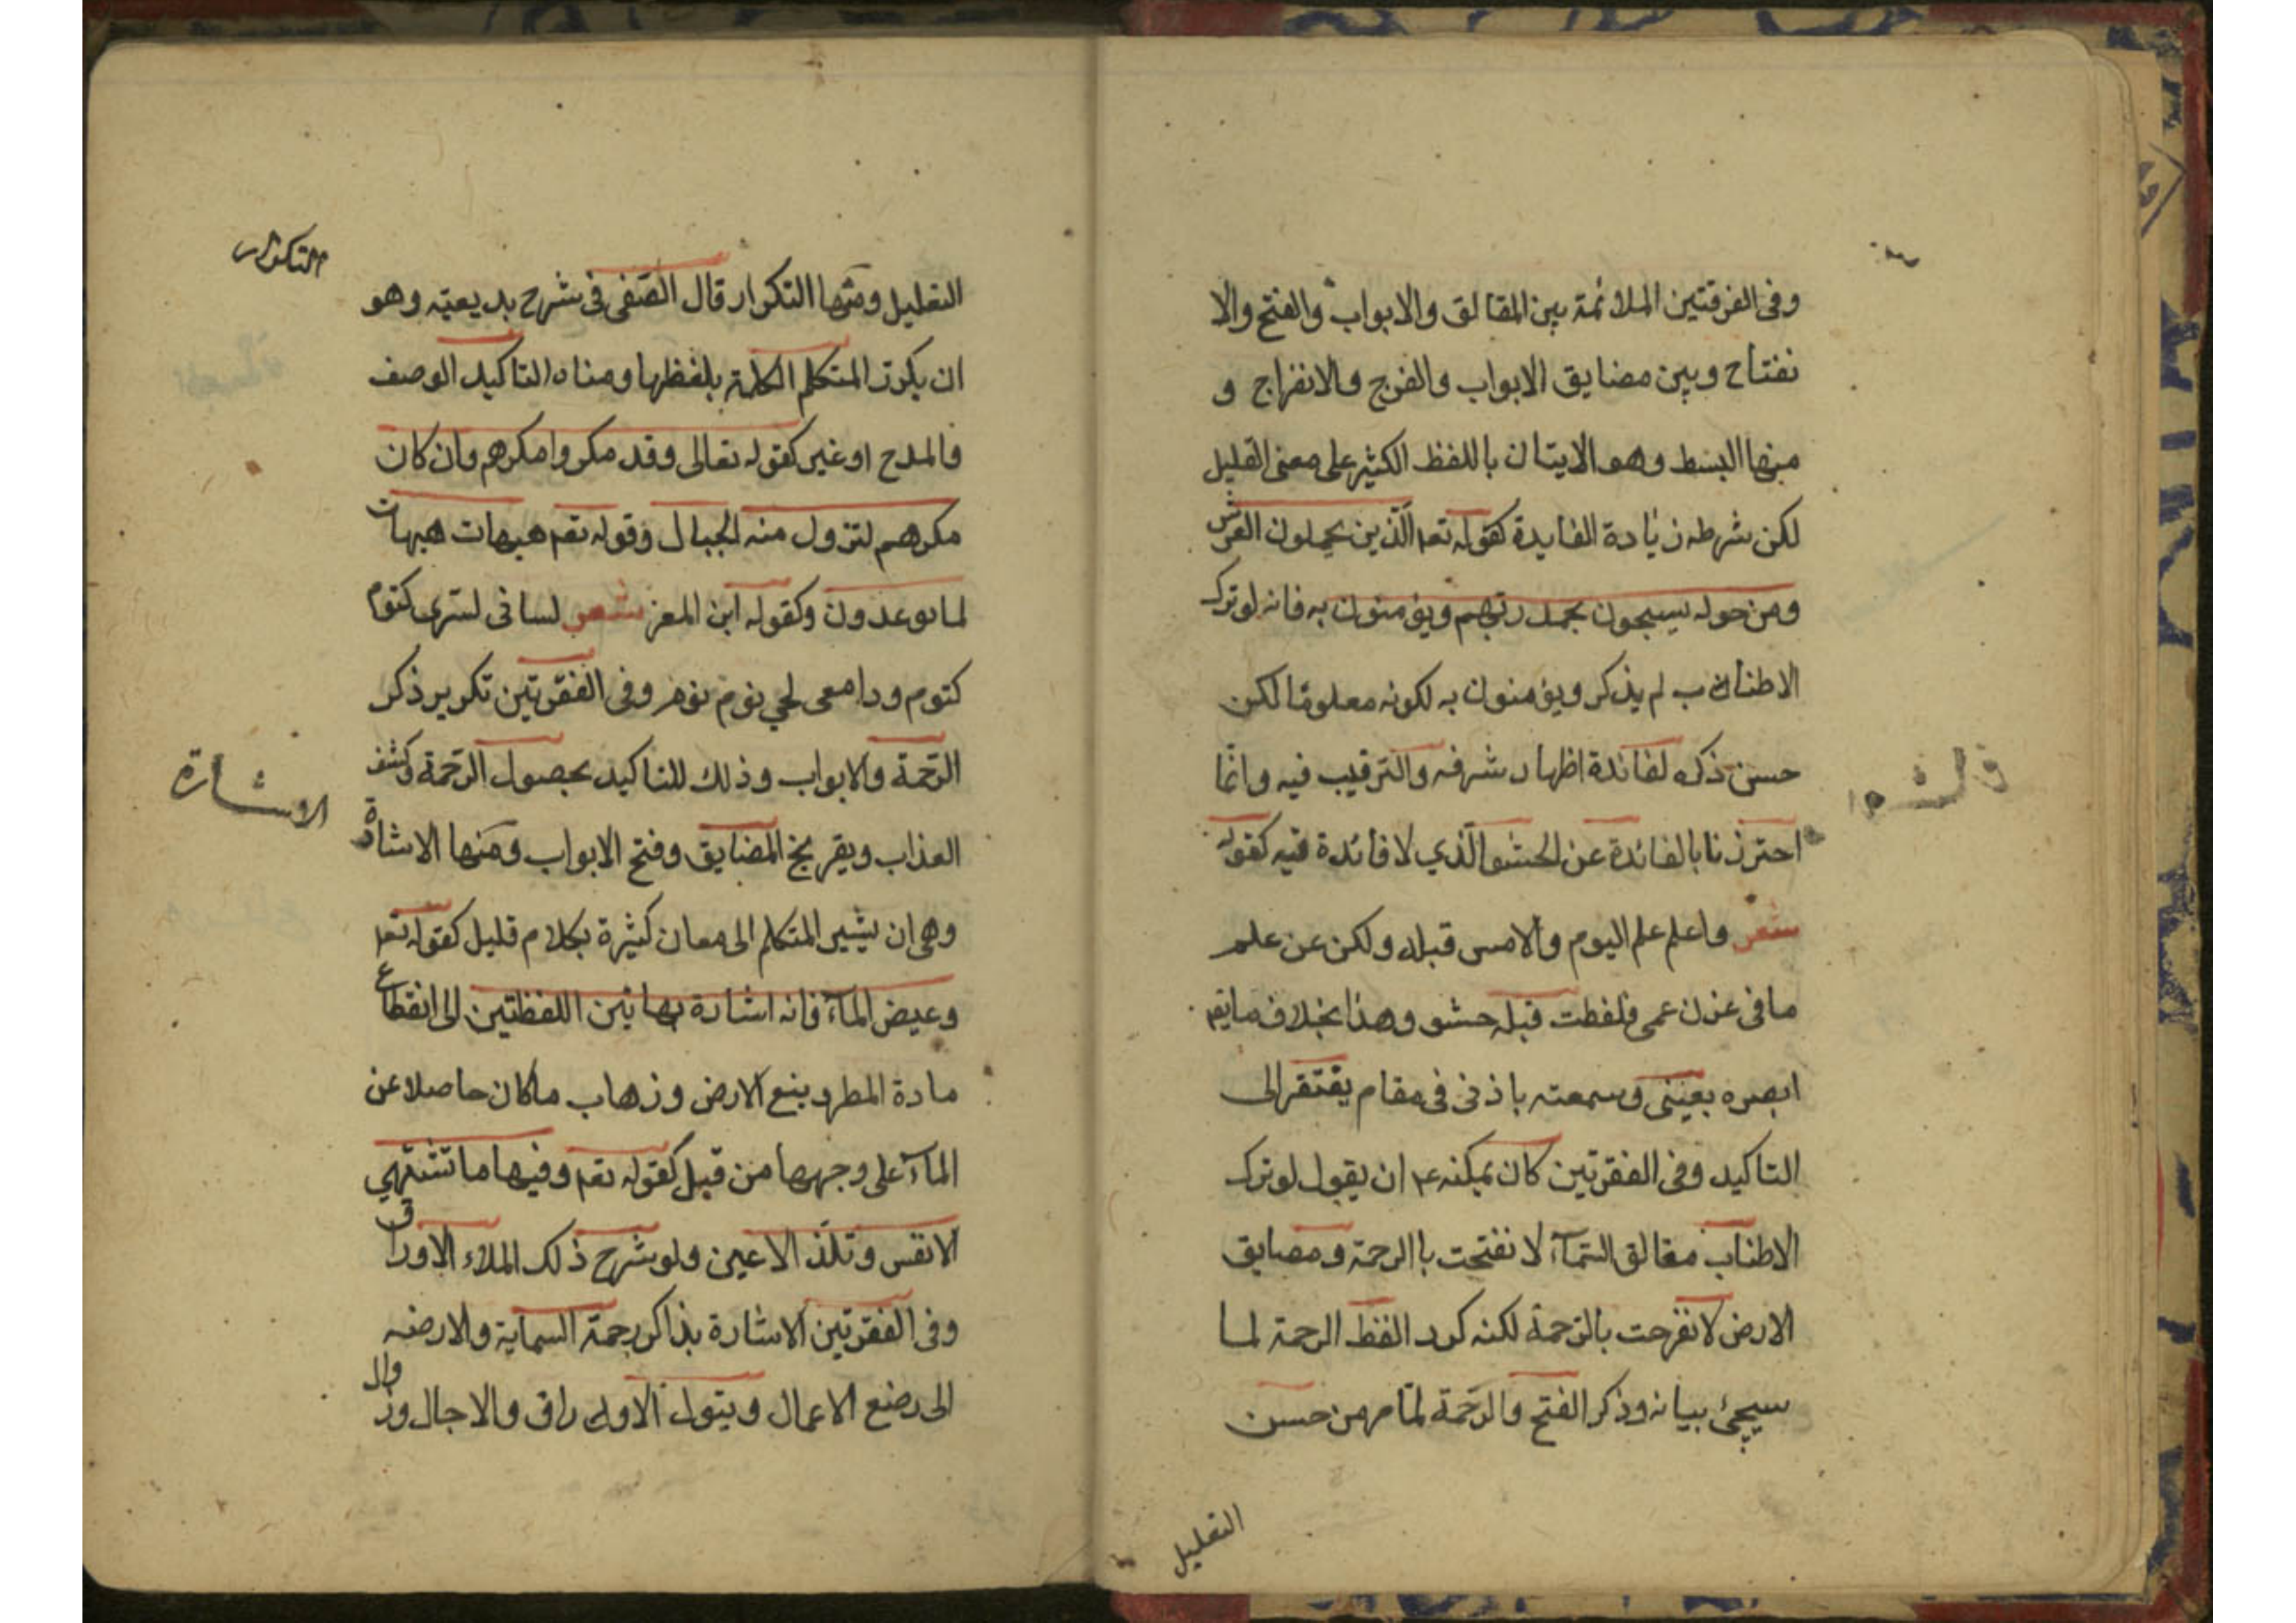 وفى الفرقتين الملائمة بين المقالق والابواب والفتح والا
نفتاح وبين مضايق الابواب والفرج والانفراج و
منها البسط وهو الايتان باللفظ الكثير على معنى القليل
لكن شرطه زيادة الفايدة كقوله تعم الذين يحملون العرش
ومن حوله يسبحون بحمد ربهم ويؤمنون به فانه لو ترك
الاطناب لم يذكر ويؤمنون به لكونه معلوما لكن
حسن ذكره لفائدة اظهار شرفه والترقيب فيه وانما
احترزنا بالفائدة عن الحشو الذي لا فائدة فيه كقوله
شعر واعلم علم اليوم والامس قبله ولكن عن علم
ما فى غدن عمى فلفظت قبله حشو وهذا بخلاف ما يقم
ابصره بعينى وسمعته باذنى فى مقام يفتقر الى
التاكيد وفى الفقرتين كان يمكنه ان يقول لو ترك
الاطناب مقالق السمآء لانفتحت باالرحمة ومضايق
الارض لانفرجت بالرحمة لكنه كرر الفظ الرحمة لما
سيجئ بيانه وذكر الفتح والرحمة لما مر من حسن
التعليل
التكرار
التعليل ومنها التكرار قال الصفى فى شرح بديعيته وهو
ان يكرر المتكلم الكلمة بلفظها ومناه التاكيد الوصف
والمدح او غير كقوله تعالى وقد مكروا مكرهم وان كان
مكرهم لتزول منه الجبال وقوله تعم هيهات هيهات
لما توعدون وكقوله ابن المعز شعر لسانى لسرى كتوم
كتوم ودامعى لحي نوم نوم وفى الفقرتين تكرير ذكر
الرحمة والابواب وذلك للتاكيد بحصول الرحمة وكشف
العذاب ويقريخ المضايق وفتح الابواب ومنها الاشارة
الاشارة
وهى ان يشير المتكلم الى معان كثيرة بكلام قليل كقوله تعم
وغيض المآء فانه اشارة بهاتين اللفظتين الى انقطاع
مادة المطر ونبع الارض وذهاب ما كان حاصلا عن
المآء على وجهها من قبل كقوله تعم وفيها ما تشتهي
الانفس وتلذ الاعين ولو شرح ذلك الملاء الاوراق
وفى الفقرتين الاشارة بذاكر رحمة السماية والارضه
الى رضع الاعمال وبتول الاوراق والاجال وز